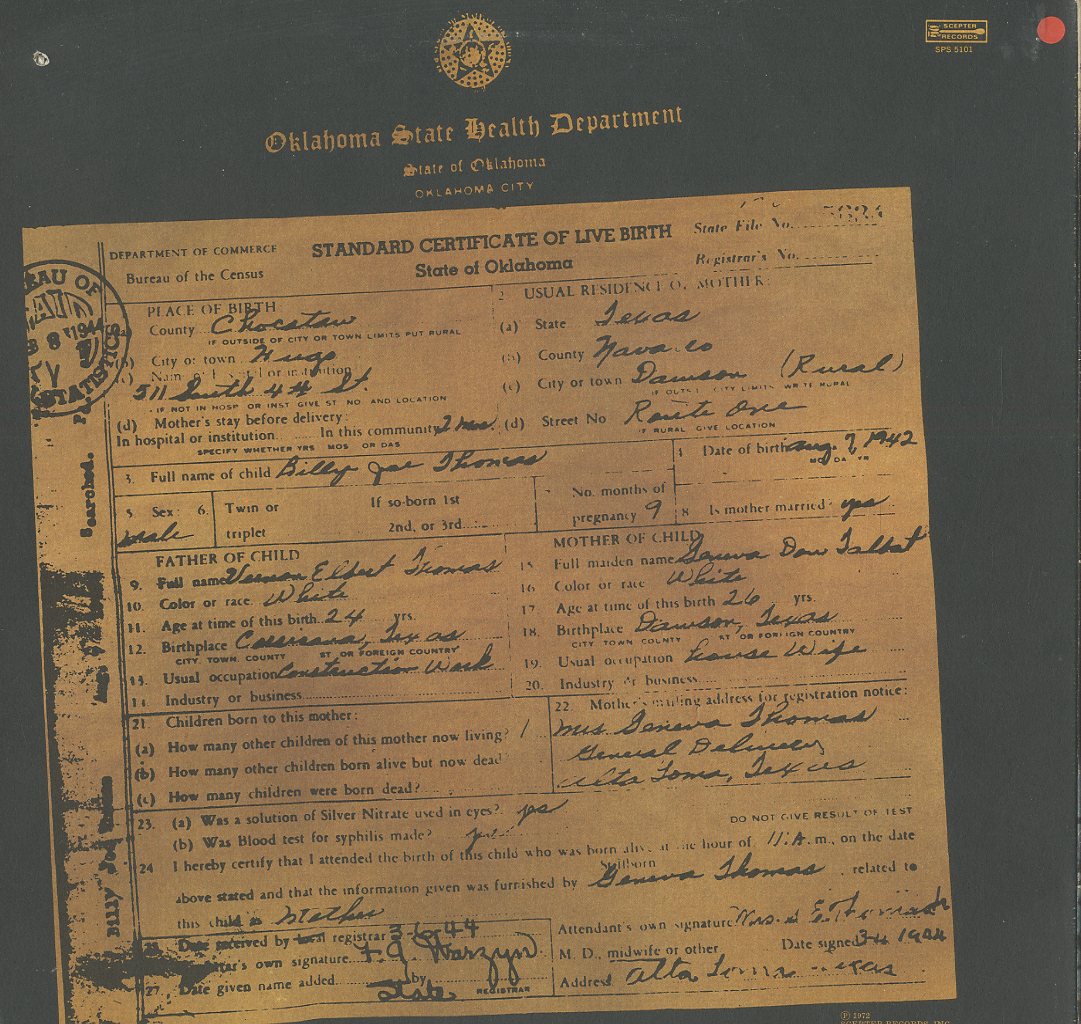 SCEPTER RECORDS
SPS 5101
Oklahoma State Health Department
State of Oklahoma
OKLAHOMA CITY
DEPARTMENT OF COMMERCE
Bureau of the Census
STANDARD CERTIFICATE OF LIVE BIRTH
State of Oklahoma
State File No.
Registrar's No.
PLACE OF BIRTH
County Choctaw
IF OUTSIDE OF CITY OR TOWN LIMITS PUT RURAL
City or town Hugo
511 South 4th St.
IF NOT IN HOSP OR INST GIVE ST NO AND LOCATION
(d) Mother's stay before delivery:
In hospital or institution In this community 2 mos
SPECIFY WHETHER YRS MOS OR DAS
2 USUAL RESIDENCE OF MOTHER:
(a) State Texas
(b) County
(c) City or town Dawson (Rural)
(d) Street No Route One
IF RURAL GIVE LOCATION
3. Full name of child Billy Joe Thomas
4 Date of birth Aug. 7, 1942
MO DA YR
5 Sex: male
6. Twin or triplet
If so-born 1st
2nd, or 3rd
7 No. months of pregnancy 9
8 Is mother married yes
FATHER OF CHILD
9. Full name Vernon Elbert Thomas
10. Color or race. White
11. Age at time of this birth 24 yrs.
12. Birthplace Texas
CITY, TOWN, COUNTY ST OR FOREIGN COUNTRY
13. Usual occupation Construction Work
14. Industry or business
MOTHER OF CHILD
15 Full maiden name Geneva Talbot
16 Color or race White
17. Age at time of this birth 26 yrs.
18. Birthplace Dawson, Texas
CITY TOWN COUNTY ST OR FOREIGN COUNTRY
19. Usual occupation House Wife
20. Industry or business
21. Children born to this mother:
(a) How many other children of this mother now living? 1
(b) How many other children born alive but now dead
(c) How many children were born dead?
22. Mother's mailing address for registration notice:
Mrs Geneva Thomas
General Delivery
Alta Loma, Texas
23. (a) Was a solution of Silver Nitrate used in eyes? yes
(b) Was Blood test for syphilis made? yes
DO NOT GIVE RESULT OF TEST
24 I hereby certify that I attended the birth of this child who was born alive at the hour of 11. A. m., on the date
Stillborn
above stated and that the information given was furnished by Geneva Thomas, related to
this child as Mother
Attendant's own signature
Date received by local registrar 3-6-44
own signature F. J. Warzyn
M. D., midwife or other Date signed
27 Date given name added by State
REGISTRAR
Address Alta Loma Texas
Searched.
Billy Joe Thomas
℗ 1972
SCEPTER RECORDS, INC.